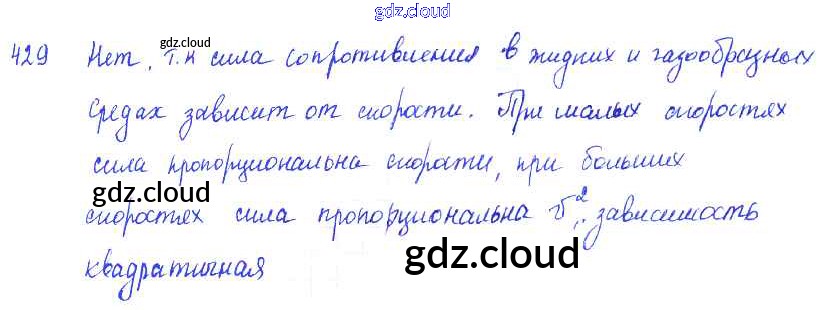 gdz.cloud
429 Нет, т.к сила сопротивления в жидких и газообразных
gdz.cloud
средах зависит от скорости. При малых скоростях
сила пропорциональна скорости, при больших
gdz.cloud
скоростях сила пропорциональна v², зависимость
квадратичная
gdz.cloud